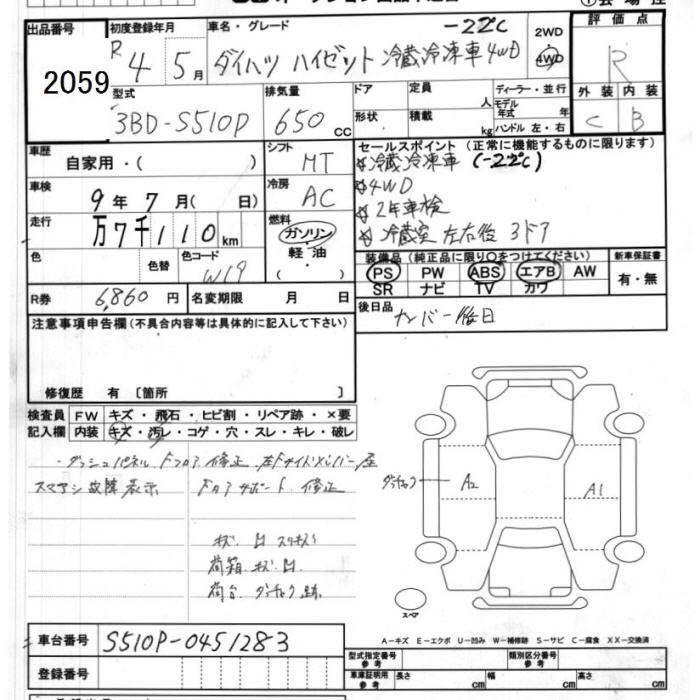 出品番号 初度登録年月 車名・グレード -22℃ 2WD 評価点
2059 R 4 5月 ダイハツ ハイゼット 冷蔵冷凍車 4WD 4WD R
型式 排気量 ドア 定員 ディーラー・並行 外装 内装
3BD-S510P 650cc 形状 積載 人 kg モデル年式 年 ハンドル 左・右 C B
車歴 シフト セールスポイント (正常に機能するものに限ります)
自家用・( ) MT ☆冷蔵冷凍車 (-22℃)
車検 冷房 ☆4WD
9年7月( 日) AC ☆2年車検
走行 燃料 ☆冷蔵室 左右後 3ドア
万7千110km ガソリン
色 色替 色コード 軽油 装備品 (純正品に限り○をつけてください) 新車保証書
W19 ( ) PS PW ABS エアB AW 有・無
R券 6,860円 名変期限 月 日 SR ナビ TV カワ
注意事項申告欄 (不具合内容等は具体的に記入して下さい) 後日品
ナンバー後日
修復歴 有 〔箇所 〕
検査員 FW キズ・飛石・ヒビ割・リペア跡・×要
記入欄 内装 キズ・汚レ・コゲ・穴・スレ・キレ・破レ
・ダッシュパネル ドフロア 修正 左Fサイドメンバー 歪
スマアシ故障表示 ドカアサポート 修正
キズ 凹
荷箱 キズ 凹
荷台 ダンチャク跡
A2 A1
スペア
A-キズ E-エクボ U-凹み W-補修跡 S-サビ C-腐食 XX-交換済
車台番号 S510P-0451283
型式指定番号 参考 類別区分番号 参考
登録番号 車庫証明用 参考 長さ cm 幅 cm 高さ cm